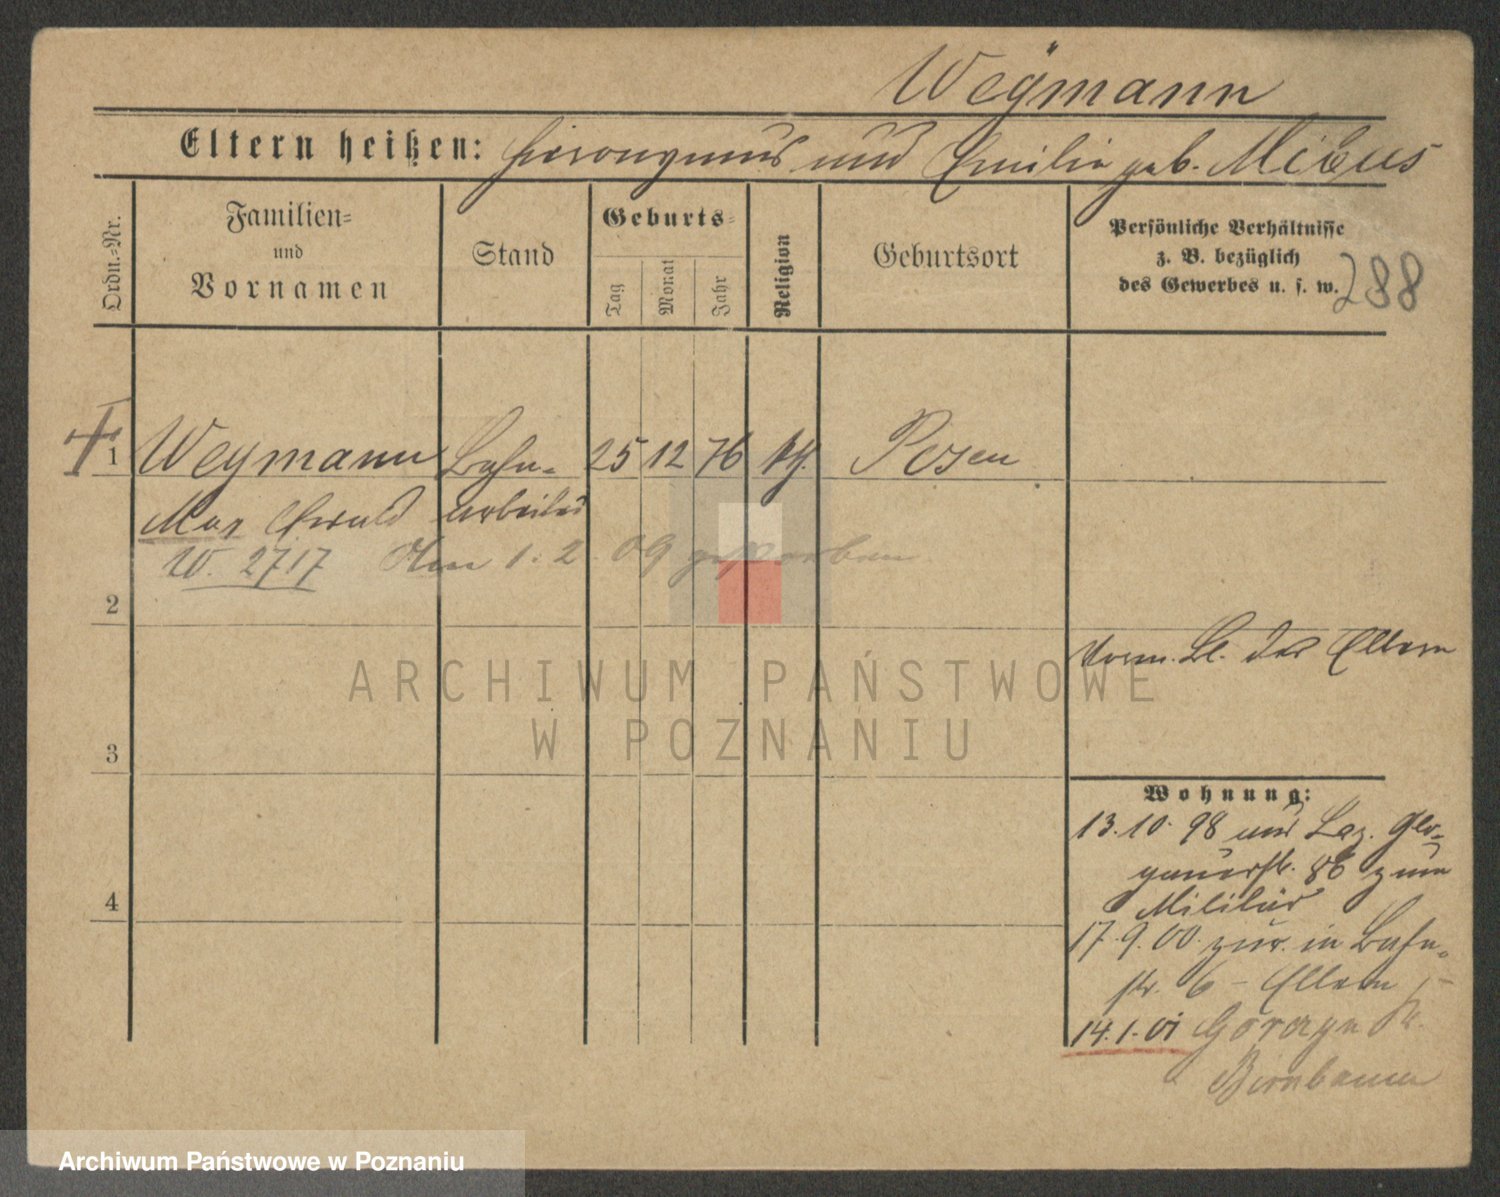 Weÿmann
Eltern heißen: Hieronymus und Emilie geb. Mibus
Ordn.=Nr.
Familien=
und
Vornamen
Stand
Geburts=
Tag
Monat
Jahr
Religion
Geburtsort
Persönliche Verhältnisse
z. B. bezüglich
des Gewerbes u. s. w.
288
1 Weymann Bahn- 25 12 76 kth. Posen
Max Ewald arbeiter
W. 2717 Am 1. 2. 09 gestorben
2
vorm. Bl. der Eltern
3
Wohnung:
13. 10. 98 aus Laz. Glo-
gauerstr. 86 zum
Militär
4
17. 9. 00. zur. in Bahn-
str. 6 - Eltern
14. 1. 01 Gorzyn Kr.
Birnbaum
ARCHIWUM PAŃSTWOWE
W POZNANIU
Archiwum Państwowe w Poznaniu